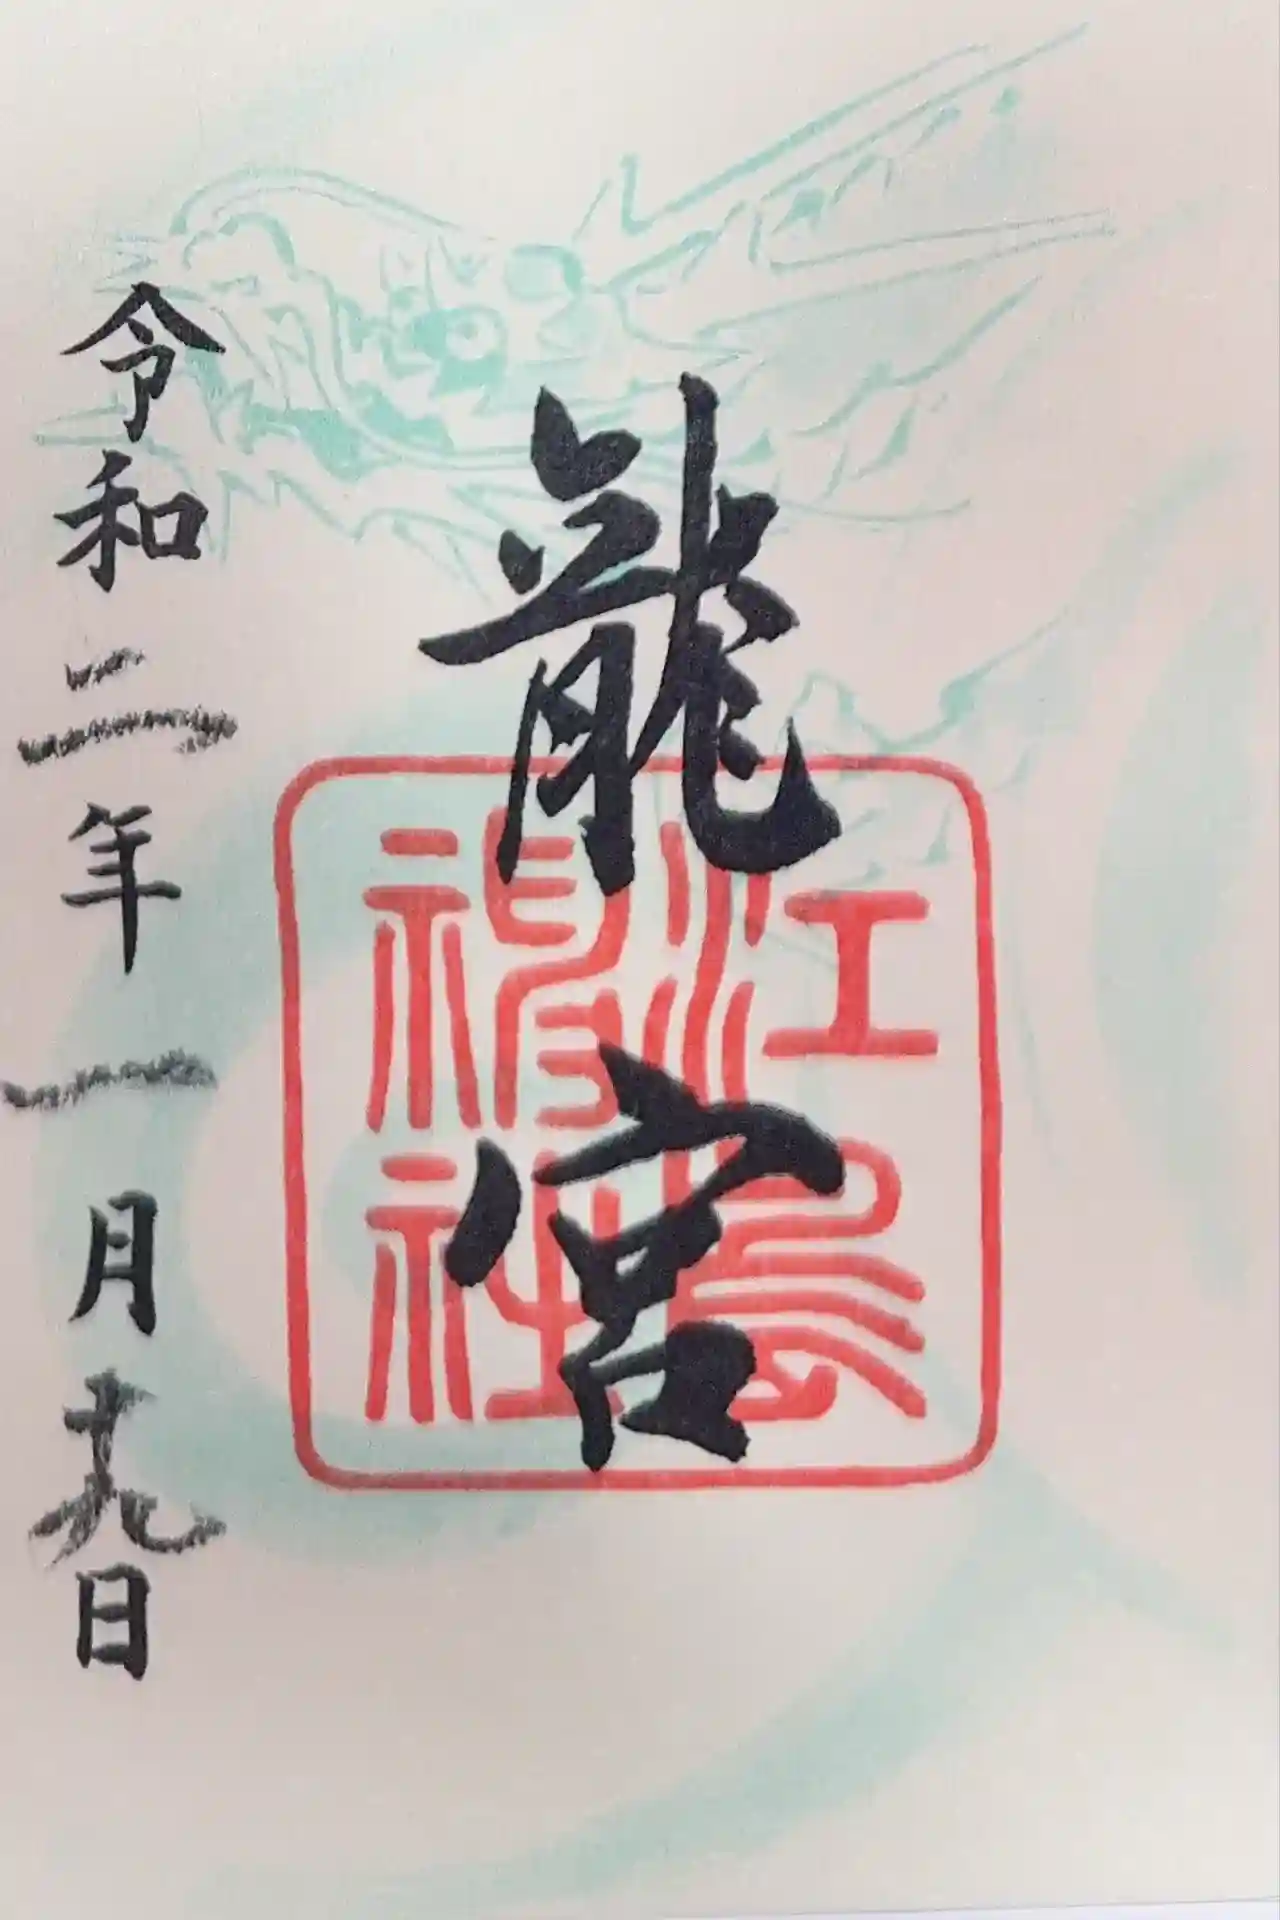 龍宮
江島神社
令和二年一月十九日